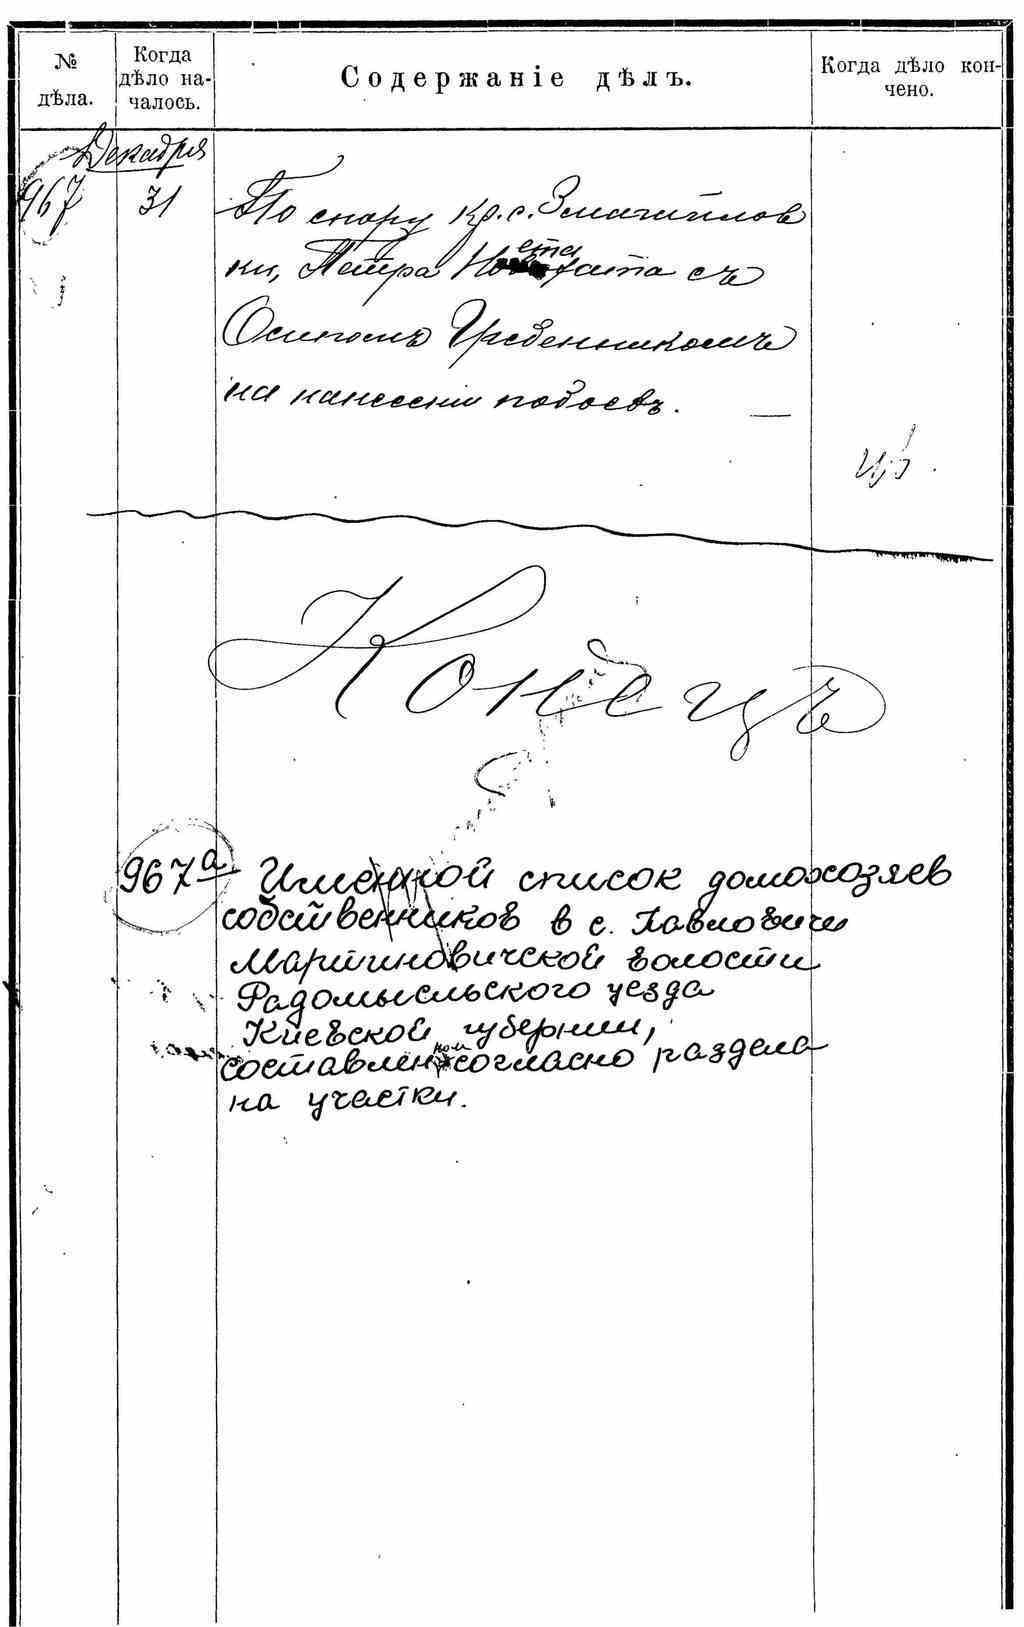 №
дѣла.
Когда
дѣло на-
чалось.
Содержаніе дѣлъ.
Когда дѣло кон-
чено.
Декабря
967 31 По спору кр. с. Измаийлов
ки, Петра съ
Осипомъ Гребенникомъ
на нанесении побоевъ.
Конецъ
967а Именной список домохозяев
собственников в с. Павловичи
Мартиновичской волости
Радомысльского уезда
Киевской губернии,
составленной согласно раздела
на участки.